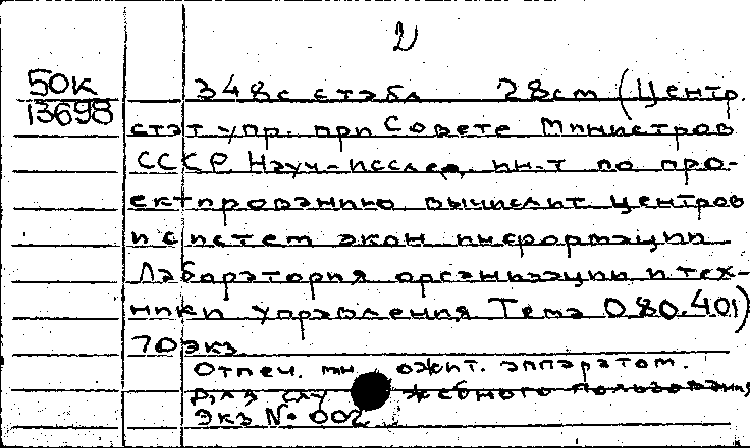 2
50к
13698
348с с табл 28см (Центр.
стат упр. при Совете Министров
СССР Науч-исслед. ин-т по про-
ектированию вычислит центров
и систем экон информации
Лаборатория организации и тех-
ники управления Тема 0.80.401)
70экз
Отпеч. мн ожит. аппаратом.
Для слу жебного пользования
Экз № 002